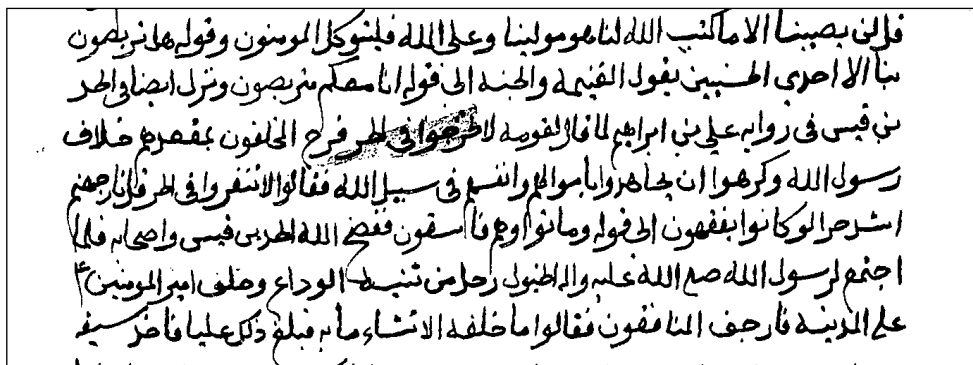 قل لن يصيبنا الا ما كتب الله لنا هو مولينا وعلى الله فليتوكل المومنون وقوله هل تربصون
بنا الا احدى الحسنيين يقول الغنيمة والجنة الى قوله انا معكم متربصون ونزل ايضا في الجد
بن قيس في رواية علي بن ابراهيم لما قال لقومه لا تخرجوا في الحر فرح المخلفون بمقعدهم خلاف
رسول الله وكرهوا ان يجاهدوا باموالهم وانفسهم في سبيل الله فقالوا لا تنفروا في الحر قل نار جهنم
اشد حرا لو كانوا يفقهون الى قوله وماتوا وهم فاسقون ففضح الله الجد بن قيس واصحابه فلما
اجتمع لرسول الله صلع الله عليه واله الخيول رحل من ثنية الوداع وخلف امير المومنين ع
على المدينة فارجف المنافقون فقالوا ما خلفه الا تشاءما به فبلغ ذلك عليا فاخذ سيفه